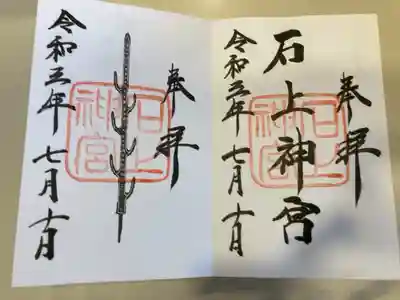 奉拝
石上神宮
石上
神宮
令和三年七月
奉拝
石上
神宮
令和三年七月